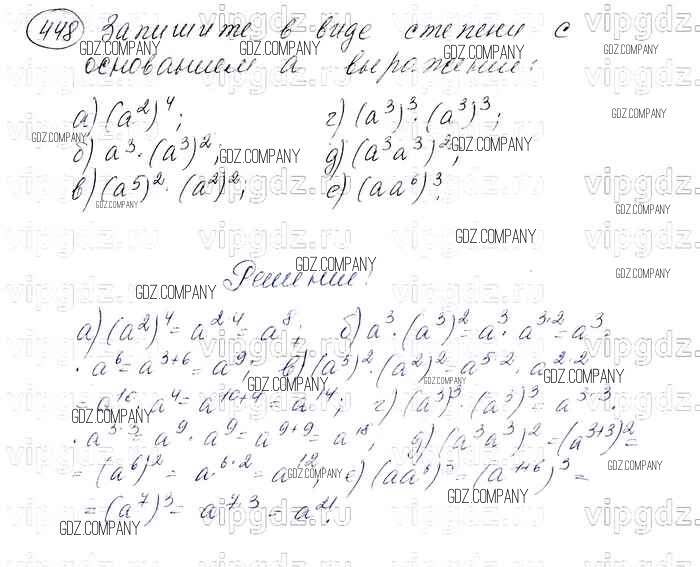 448 Запишите в виде степени с
основанием а выражение:
а) (a²)⁴; г) (a³)³·(a³)³;
б) a³·(a³)²; д) (a³a³)²;
в) (a⁵)²·(a²)²; е) (aa⁶)³.
Решение:
а) (a²)⁴ = a²·⁴ = a⁸; б) a³·(a³)² = a³·a³·² = a³·
·a⁶ = a³⁺⁶ = a⁹; в) (a⁵)²·(a²)² = a⁵·²·a²·² =
= a¹⁰·a⁴ = a¹⁰⁺⁴ = a¹⁴; г) (a³)³·(a³)³ = a³·³·
·a³·³ = a⁹·a⁹ = a⁹⁺⁹ = a¹⁸; д) (a³a³)² = (a³⁺³)² =
= (a⁶)² = a⁶·² = a¹²; е) (aa⁶)³ = (a¹⁺⁶)³ =
= (a⁷)³ = a⁷·³ = a²¹.
GDZ.COMPANY
vipgdz.ru